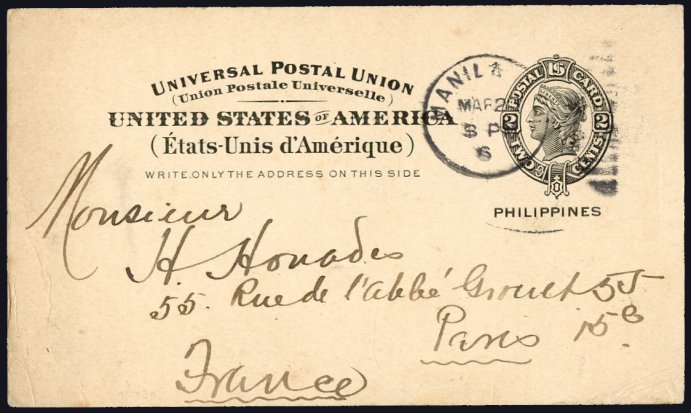 UNIVERSAL POSTAL UNION
(Union Postale Universelle)
UNITED STATES OF AMERICA
(États-Unis d'Amérique)
WRITE ONLY THE ADDRESS ON THIS SIDE
MANILA
MAR 2
3 P
6
POSTAL CARD
2 TWO CENTS 2
PHILIPPINES
Monsieur
H. Honades
55. Rue de l'abbé Grouet 55
Paris 15e
France